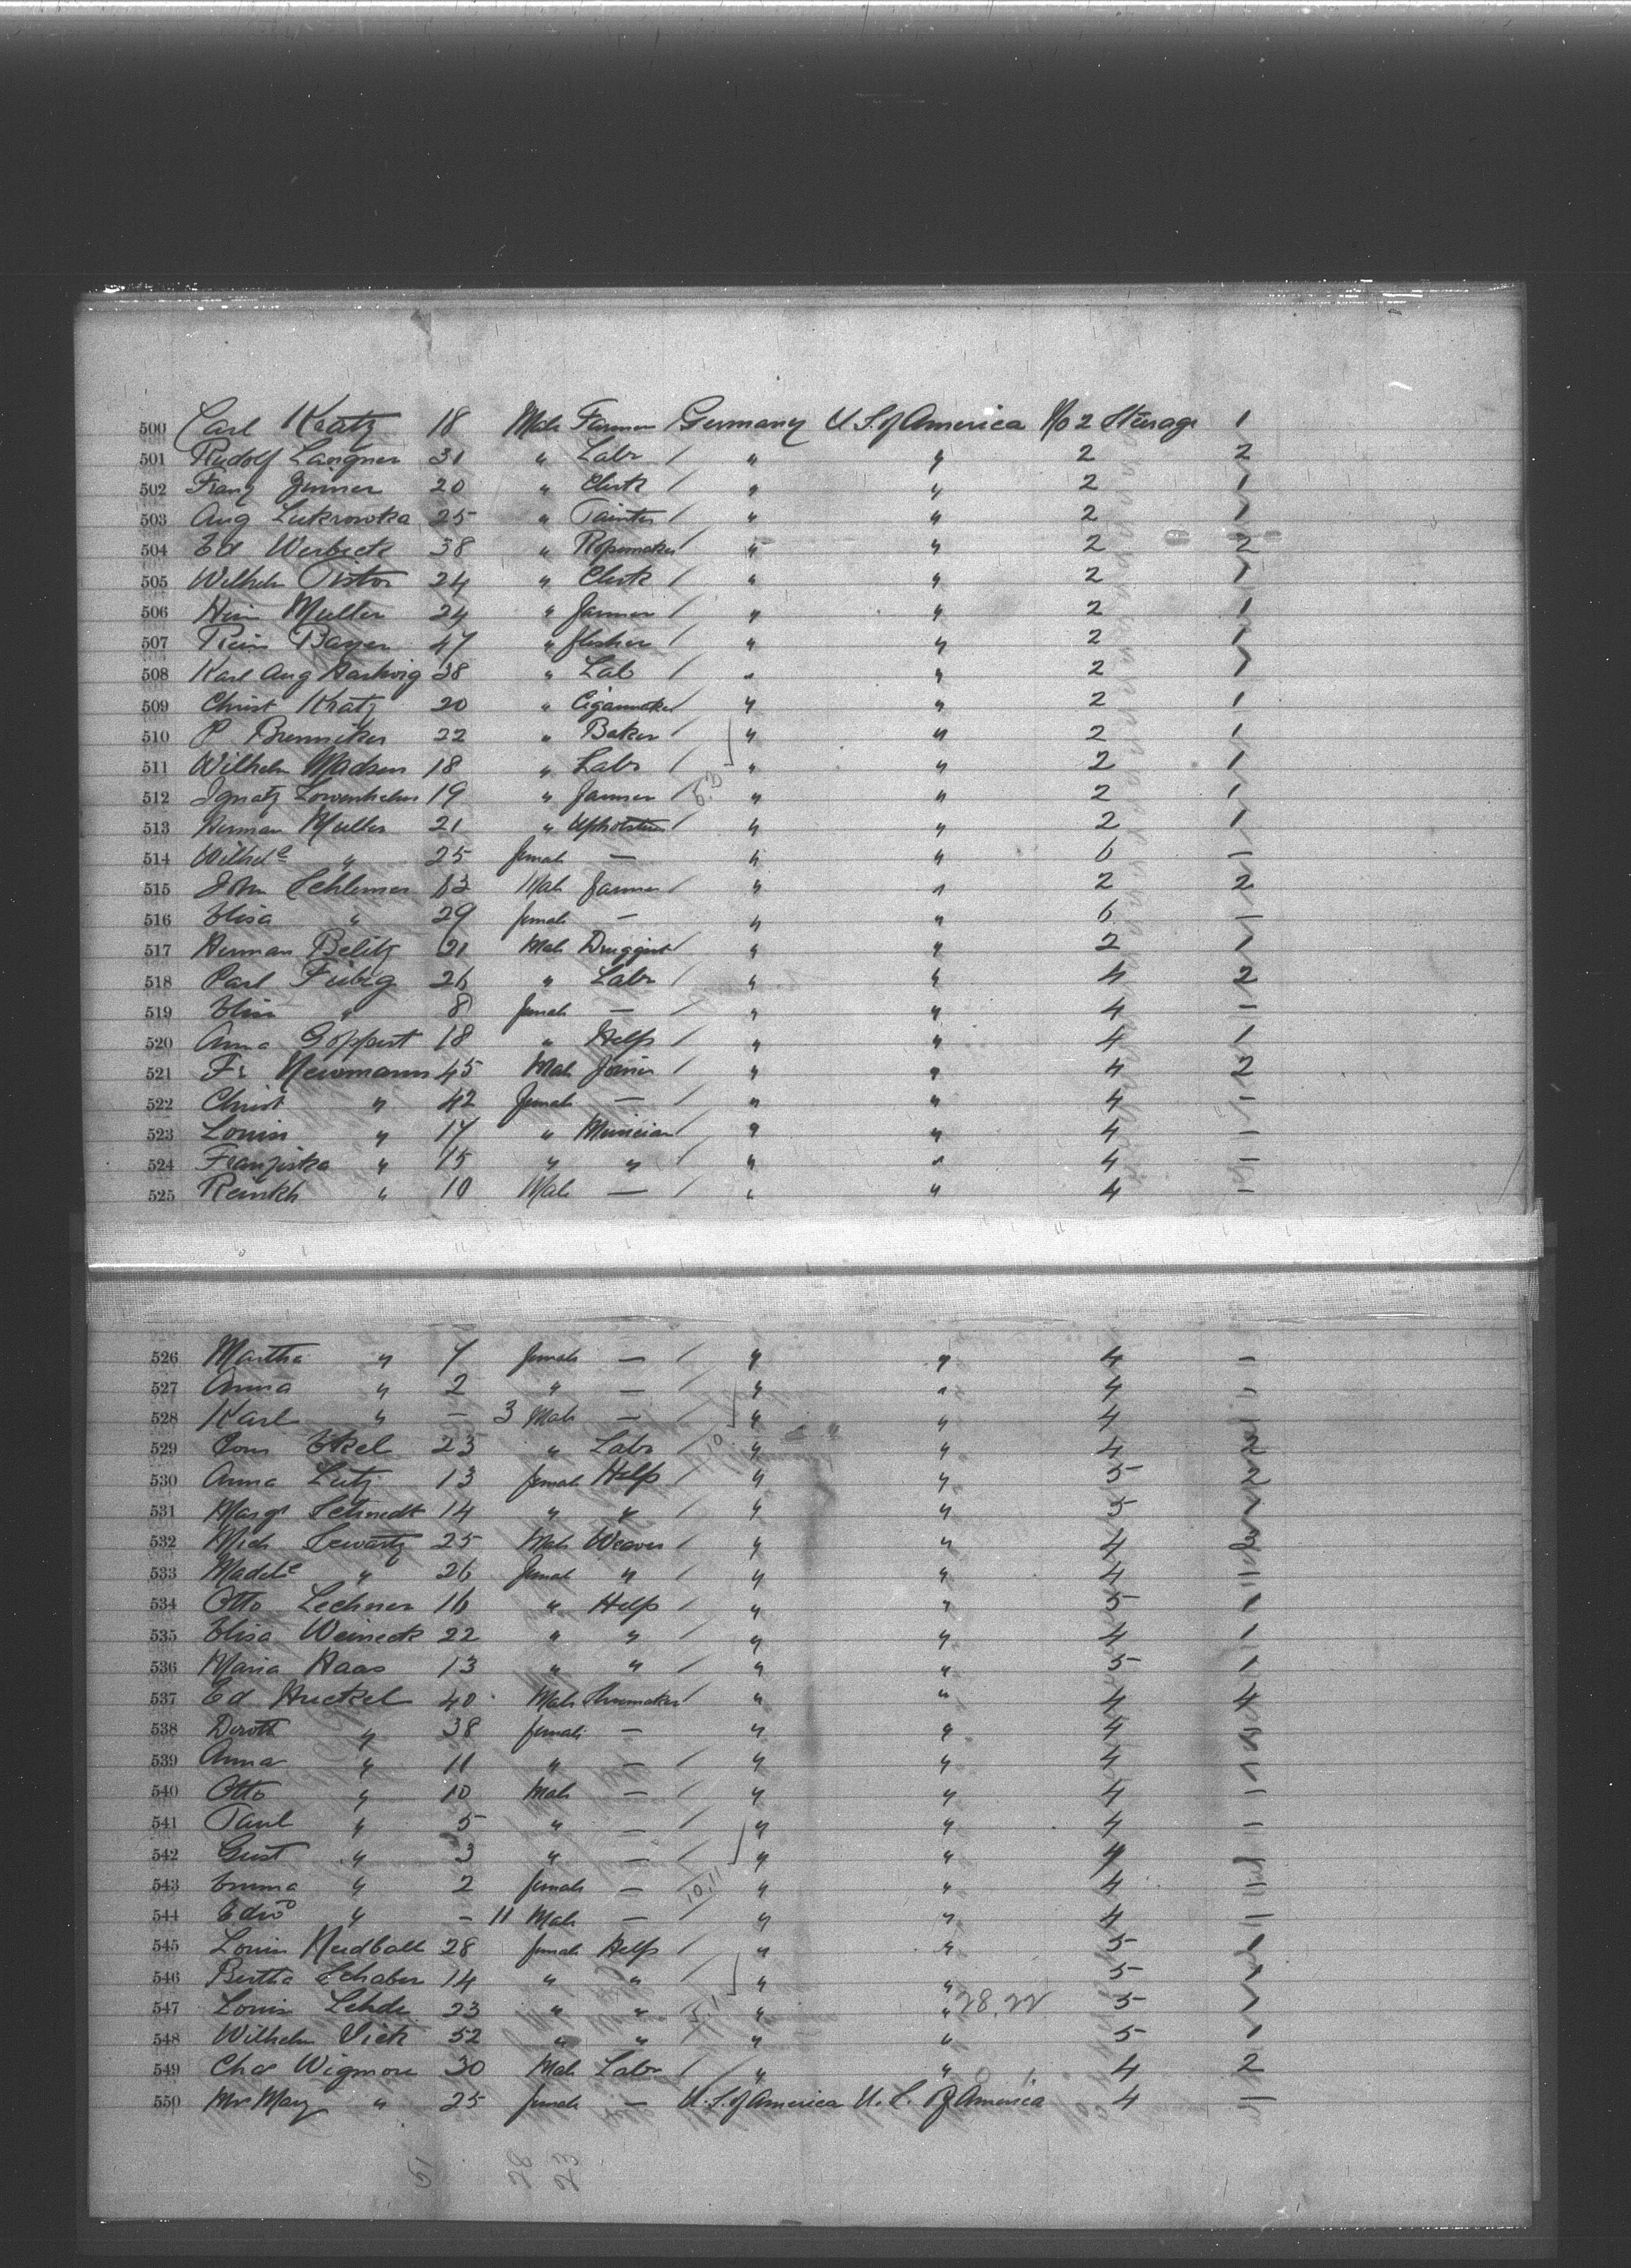 500 Carl Kratz 18 Male Farmer Germany U.S. of America No 2 Sterage 1
501 Rudolf Langner 31 " Labr / " " 2 2
502 Franz Zinner 20 " Clerk / " " 2 1
503 Aug Lukrowska 25 " Painter / " " 2 1
504 Ed Werbeck 38 " Ropemaker / " " 2 2
505 Wilhelm Pistor 24 " Clerk / " " 2 1
506 Hein Muller 24 " farmer / " " 2 1
507 Bayer 47 " flesher / " " 2 1
508 Karl Aug Hartwig 38 " Lab / " " 2 1
509 Christ Kratz 20 " Cigarmaker / " " 2 1
510 P Brenniker 22 " Baker / " " 2 1
511 Wilhelm Madsen 18 " Labr / " " 2 1
512 Ignatz Lowenhelm 19 " farmer / " " 2 1
513 Herman Muller 21 " Upholsterer / " " 2 1
514 Wilhele " 25 female — " " 6 —
515 John Schlemer 13 Male farmer / " " 2 2
516 Elisa " 29 female — " " 6 —
517 Herman Belitz 21 Male Druggist / " " 2 1
518 Carl Fiebig 26 " Labr / " " 4 2
519 Elisa " 8 female — / " " 4 —
520 Anna Goppert 18 " Help / " " 4 1
521 Fr Newmann 45 Male Joiner / " " 4 2
522 Christ " 42 female — / " " 4 —
523 Louisa " 17 " Musician / " " 4 —
524 Franziska " 15 " " / " " 4 —
525 Reinkh " 10 Male — / " " 4 —
526 Martha " 7 female — / " " 4 —
527 Anna " 2 " — / " " 4 —
528 Karl " — 3 Male — / " " 4
529 Ekel 23 " Labr / " " 4 2
530 Anna Lutz 13 female Help / " " 5 2
531 Margr Schmedt 14 " " / " " 5
532 Mich Sewartz 25 Male Weaver / " " 4
533 Madele " 26 female " / " " 4
534 Otto Lechner 16 " Help / " " 5 1
535 Elisa Weineck 22 " " / " " 4 1
536 Maria Haas 13 " " / " " 5 1
537 Ed Huckel 40 Male Shoemaker / " " 4 4
538 Doroth " 38 female — " " 4
539 Anna " 11 " — / " " 4
540 Otto " 10 Male — / " " 4 —
541 Paul " 5 " — / " " 4 —
542 Gust " 3 " — / " " 4
543 Emma " 2 female — 10.11 " " 4 —
544 Edwd " — 11 Male — / " " 4 —
545 Louisa Neidball 28 female Help / " " 5 1
546 Bertha Schaber 14 " " / " " 5 1
547 Louisa Lehde 23 " " " " 28.22 5 1
548 Wilhelm Vick 52 " " " " 5 1
549 Chas Wigmore 30 Male Labr / " " 4 2
550 Mrs Mary " 25 female — U.S. of America U.S. of America 4
51 28 23